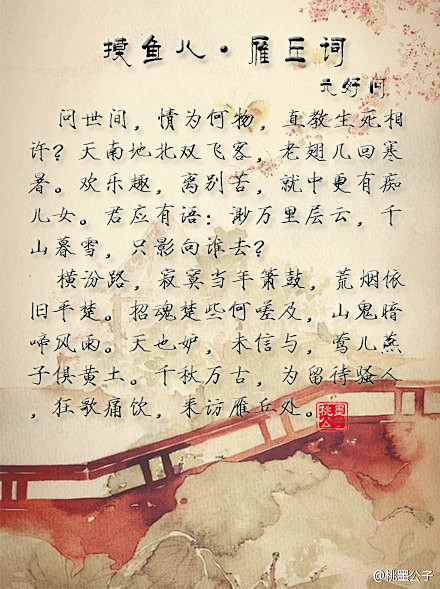 摸鱼儿·雁丘词
元好问
问世间，情为何物，直教生死相
许？天南地北双飞客，老翅几回寒
暑。欢乐趣，离别苦，就中更有痴
儿女。君应有语：渺万里层云，千
山暮雪，只影向谁去？
横汾路，寂寞当年箫鼓，荒烟依
旧平楚。招魂楚些何嗟及，山鬼暗
啼风雨。天也妒，未信与，莺儿燕
子俱黄土。千秋万古，为留待骚人
，狂歌痛饮，来访雁丘处。
桃墨公子
@桃墨公子